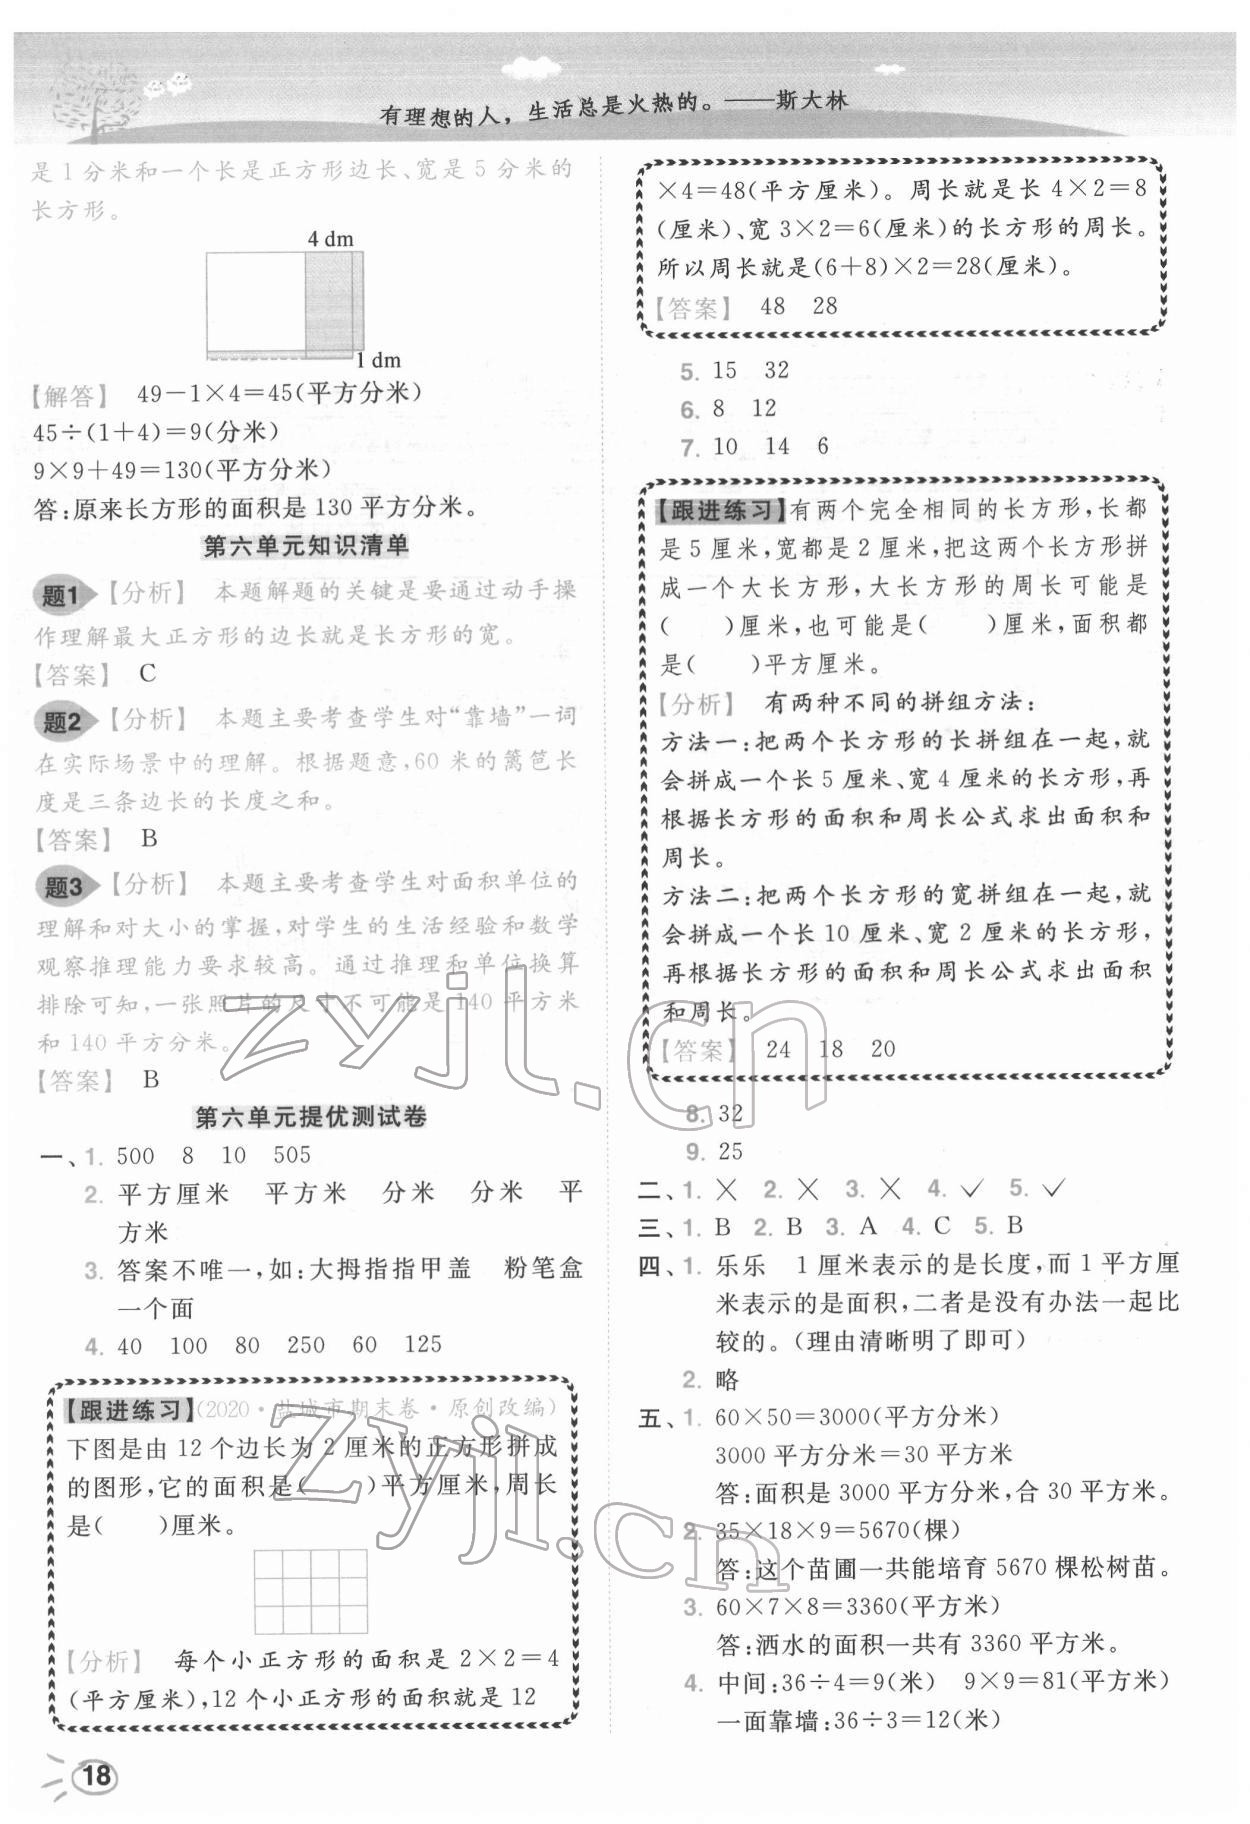 有理想的人，生活总是火热的。——斯大林
是 1 分米和一个长是正方形边长、宽是 5 分米的
长方形。
4 dm
1 dm
【解答】 49－1×4＝45(平方分米)
45÷(1＋4)＝9(分米)
9×9＋49＝130(平方分米)
答:原来长方形的面积是 130 平方分米。
第六单元知识清单
题1 【分析】 本题解题的关键是要通过动手操
作理解最大正方形的边长就是长方形的宽。
【答案】 C
题2 【分析】 本题主要考查学生对“靠墙”一词
在实际场景中的理解。根据题意,60 米的篱笆长
度是三条边长的长度之和。
【答案】 B
题3 【分析】 本题主要考查学生对面积单位的
理解和对大小的掌握,对学生的生活经验和数学
观察推理能力要求较高。通过推理和单位换算
排除可知,一张照片的尺寸不可能是 140 平方米
和 140 平方分米。
【答案】 B
第六单元提优测试卷
一、1. 500 8 10 505
2. 平方厘米 平方米 分米 分米 平
方米
3. 答案不唯一,如:大拇指指甲盖 粉笔盒
一个面
4. 40 100 80 250 60 125
【跟进练习】(2020·盐城市期末卷·原创改编)
下图是由 12 个边长为 2 厘米的正方形拼成
的图形,它的面积是( )平方厘米,周长
是( )厘米。
【分析】 每个小正方形的面积是 2×2＝4
(平方厘米),12 个小正方形的面积就是 12
18
×4＝48(平方厘米)。周长就是长 4×2＝8
(厘米)、宽 3×2＝6(厘米)的长方形的周长。
所以周长就是(6＋8)×2＝28(厘米)。
【答案】 48 28
5. 15 32
6. 8 12
7. 10 14 6
【跟进练习】有两个完全相同的长方形,长都
是 5 厘米,宽都是 2 厘米,把这两个长方形拼
成一个大长方形,大长方形的周长可能是
( )厘米,也可能是( )厘米,面积都
是( )平方厘米。
【分析】 有两种不同的拼组方法:
方法一:把两个长方形的长拼组在一起,就
会拼成一个长 5 厘米、宽 4 厘米的长方形,再
根据长方形的面积和周长公式求出面积和
周长。
方法二:把两个长方形的宽拼组在一起,就
会拼成一个长 10 厘米、宽 2 厘米的长方形,
再根据长方形的面积和周长公式求出面积
和周长。
【答案】 24 18 20
8. 32
9. 25
二、1. × 2. × 3. × 4. ✓ 5. ✓
三、1. B 2. B 3. A 4. C 5. B
四、1. 乐乐 1 厘米表示的是长度,而 1 平方厘
米表示的是面积,二者是没有办法一起比
较的。(理由清晰明了即可)
2. 略
五、1. 60×50＝3000(平方分米)
3000 平方分米＝30 平方米
答:面积是 3000 平方分米,合 30 平方米。
2. 35×18×9＝5670(棵)
答:这个苗圃一共能培育 5670 棵松树苗。
3. 60×7×8＝3360(平方米)
答:洒水的面积一共有 3360 平方米。
4. 中间:36÷4＝9(米) 9×9＝81(平方米)
一面靠墙:36÷3＝12(米)
zyjl.cn
zyjl.cn